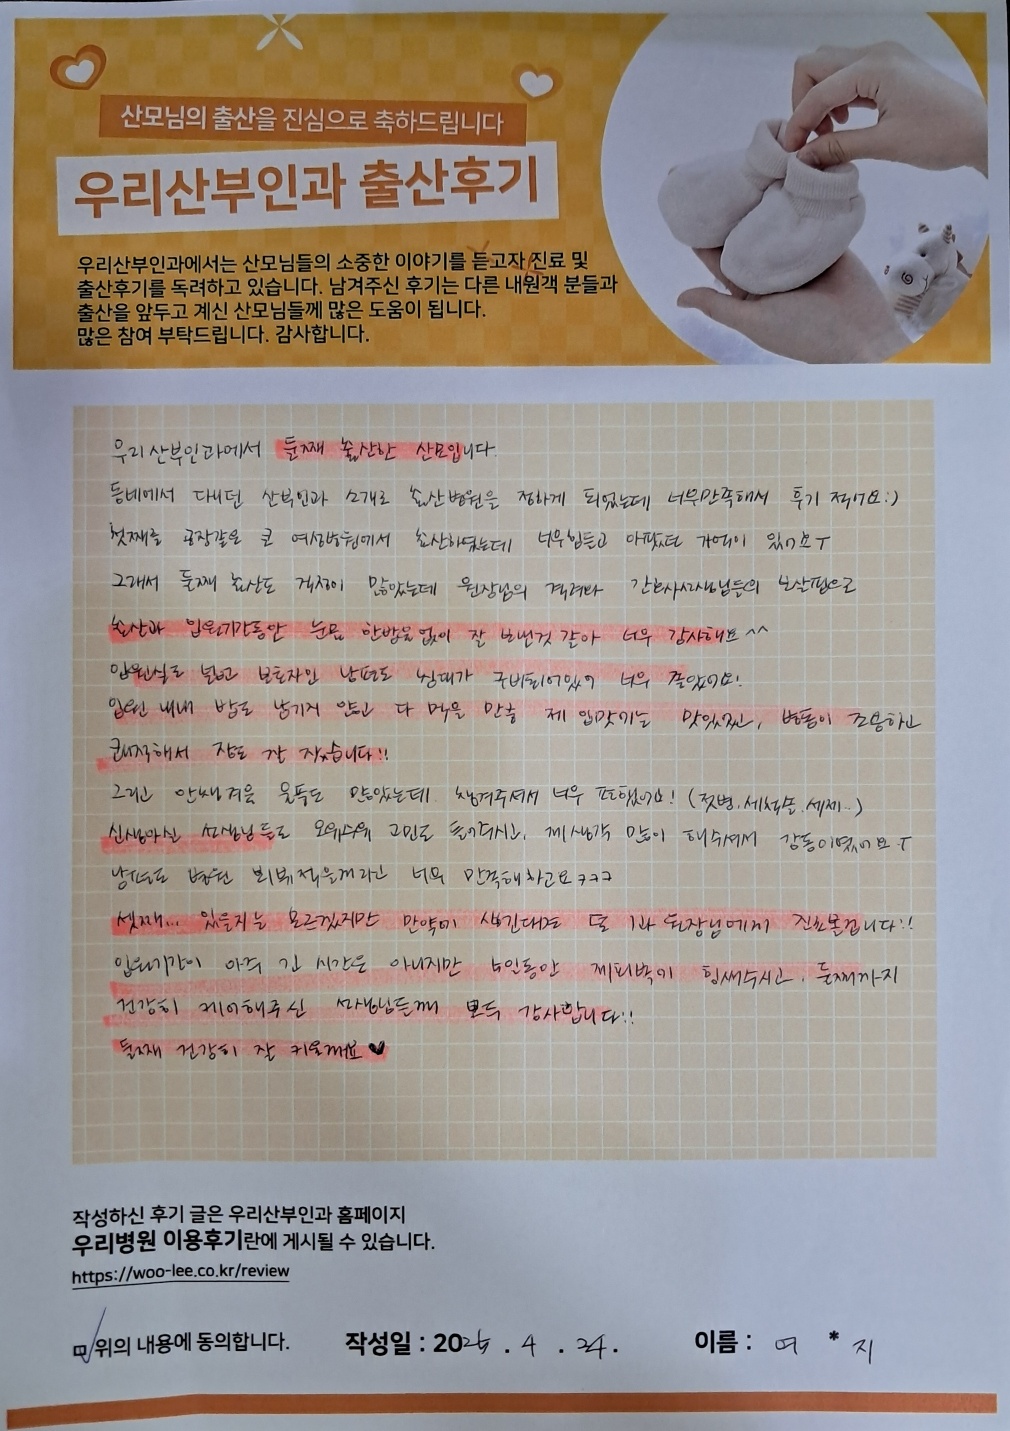 산모님의 출산을 진심으로 축하드립니다
우리산부인과 출산후기
우리산부인과에서는 산모님들의 소중한 이야기를 듣고자 진료 및
출산후기를 독려하고 있습니다. 남겨주신 후기는 다른 내원객 분들과
출산을 앞두고 계신 산모님들께 많은 도움이 됩니다.
많은 참여 부탁드립니다. 감사합니다.
우리산부인과에서 둘째 출산한 산모입니다.
동네에서 다니던 산부인과 소개로 출산병원을 정하게 되었는데 너무만족해서 후기 적어요:)
첫째를 공장같은 큰 여성병원에서 출산하였는데 너무힘들고 아팠던 기억이 있어요ㅜ
그래서 둘째 출산도 걱정이 많았는데 원장님의 격려와 간호사선생님들의 보살핌으로
출산과 입원기간동안 눈물 한방울없이 잘 보낸것 같아 너무 감사해요^^
입원실도 넓고 보호자인 남편도 침대가 구비되어있어 너무 좋았어요!
입원 내내 밥도 남기지 않고 다 먹을 만큼 제 입맛에는 맛있었고, 병동이 조용하고
쾌적해서 잠도 잘 잤습니다!!
그리고 안챙겨온 물품도 많았는데 챙겨주셔서 너무 편했어요! (젖병,세척솔,세제..)
신생아실 선생님들도 모유수유 고민도 들어주시고, 제생각 많이 해주셔서 감동이였어요ㅜ
남편도 병원 리뷰적을거라고 너무 만족해하고요ㅋㅋㅋ
셋째... 있을지는 모르겠지만 만약에 생긴대도 또 1과 원장님에게 진료볼겁니다!!
입원기간이 아주 긴 시간은 아니지만 4일동안 케어해주시고, 둘째까지
건강히 케어해주신 선생님들께 모두 감사합니다!!
둘째 건강히 잘 키울께요♥
작성하신 후기 글은 우리산부인과 홈페이지
우리병원 이용후기란에 게시될 수 있습니다.
https://woo-lee.co.kr/review
위의 내용에 동의합니다. 작성일 : 20 . 4 . 24. 이름 : 여 * 지